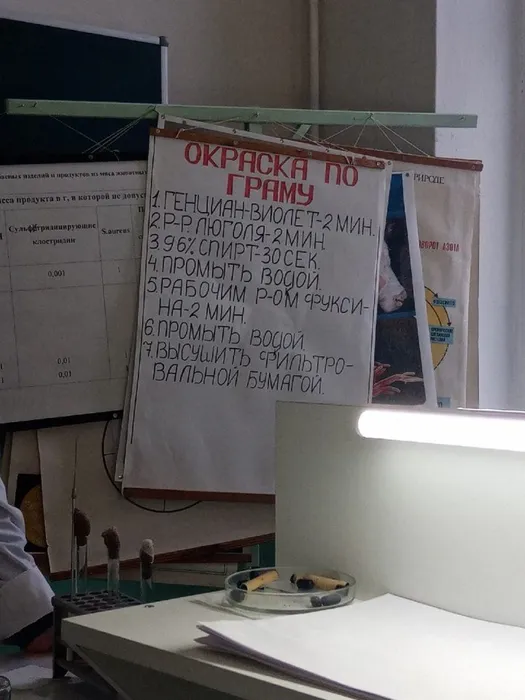 ОКРАСКА ПО
ГРАМУ
1. ГЕНЦИАН-ВИОЛЕТ-2 МИН.
2. Р-Р ЛЮГОЛЯ-2 МИН.
3. 96% СПИРТ-30 СЕК.
4. ПРОМЫТЬ ВОДОЙ.
5. РАБОЧИМ Р-ОМ ФУКСИ-
НА-2 МИН.
6. ПРОМЫТЬ ВОДОЙ.
7. ВЫСУШИТЬ ФИЛЬТРО-
ВАЛЬНОЙ БУМАГОЙ.
изделий и продуктов из мяса
продукта в г, в которой не допус
Сульфитредуцирующие
клостридии
S.aureus
0,001
0,01
0,01
РИРОДЕ
ВОРОТ АЗОТА